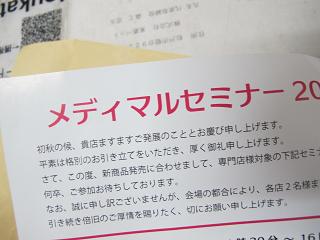 メディマルセミナー 20
初秋の候、貴店ますますご発展のこととお慶び申し上げます。
平素は格別のお引き立てをいただき、厚く御礼申し上げます。
さて、この度、新商品発売に合わせまして、専門店様対象の下記セミ
何卒、ご参加お待ちしております。
なお、誠に申し訳ございませんが、会場の都合により、各店2名様ま
引き続き倍旧のご厚情を賜りたく、切にお願い申し上げます。